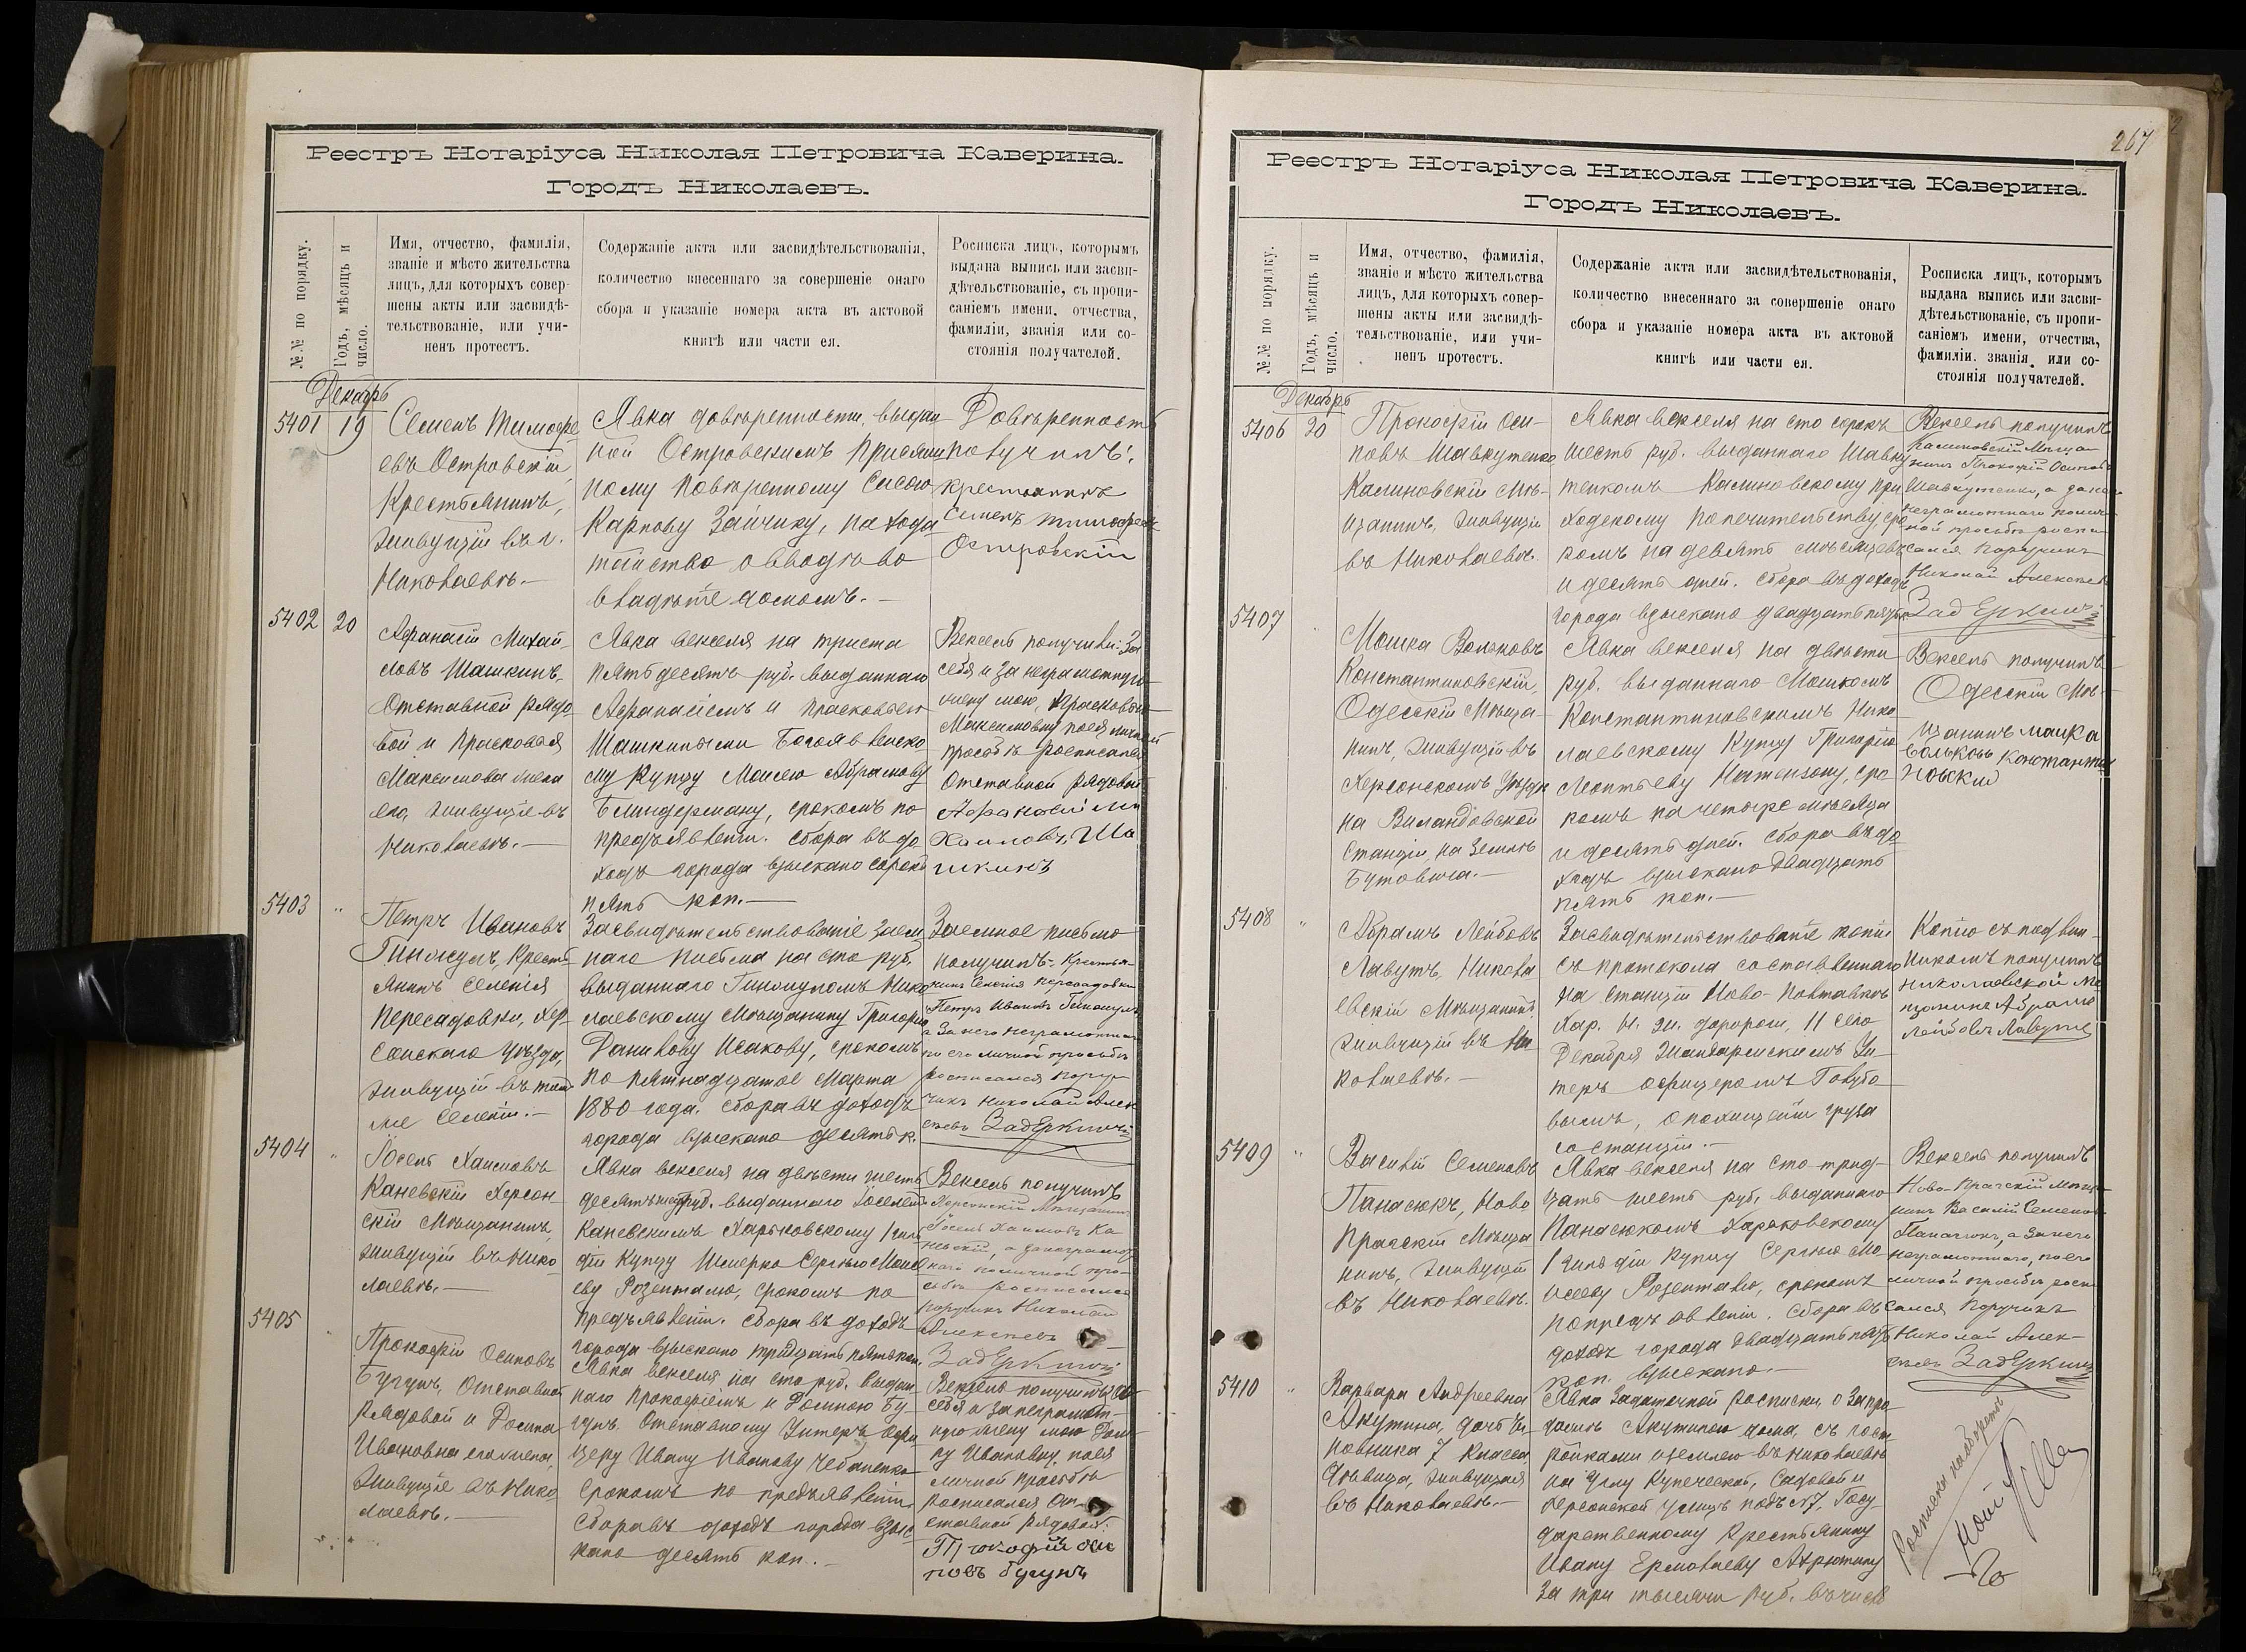 Реестръ Нотаріуса Николая Петровича Каверина.
Городъ Николаевъ.
№.№ по порядку.
Годъ, мѣсяцъ и
число.
Имя, отчество, фамилія,
званіе и мѣсто жительства
лицъ, для которыхъ совер-
шены акты или засвидѣ-
тельствованіе, или учи-
ненъ протестъ.
Содержаніе акта или засвидѣтельствованія,
количество внесеннаго за совершеніе онаго
сбора и указаніе номера акта въ актовой
книгѣ или части ея.
Росписка лицъ, которымъ
выдана выпись или засви-
дѣтельствованіе, съ пропи-
саніемъ имени, отчества,
фамиліи, званія или со-
стоянія получателей.
Декабрь
5401
19
Семенъ Тимофе
евъ Островскій,
Крестьянинъ,
живущій въ г.
Николаевѣ.—
Явка довѣренности, выдан
ной Островскимъ Присяж
ному Повѣренному Сысою
Карпову Зайчику, на хода
тайство о вводѣ во
владѣніе домомъ.—
Довѣренность
получилъ:
крестьянинъ
Семенъ Тимофеевъ
Островскій
5402
20
Афанасій Михай
ловъ Шашкинъ,
Отставной рядо
вой и Прасковья
Максимова жена
его, живущіе въ
Николаевѣ.—
Явка векселя на триста
пятьдесятъ руб. выданнаго
Афанасіемъ и Прасковьею
Шашкиными Богоявленско
му Купцу Моисею Абрамову
Блиндерману, срокомъ по
предъявленіи. Сбора въ до
ходъ города взыскано сорокъ
пять коп.—
Вексель получили: За
себя и за неграмотную
жену мою, Прасковью
Максимовну по ея личной
просьбѣ росписался
Отставной рядовой
Афанасій Ми
хаиловъ Ша
шкинъ
5403
"
Петръ Ивановъ
Гинжулъ, Кресть
янинъ селенія
Пересадовки, Хер
сонскаго уѣзда,
живущій въ томъ
же селеніи.—
Засвидѣтельствованіе заем
наго письма на сто руб.
выданнаго Гинжуломъ Нико
лаевскому Мѣщанину Григорію
Данилову Исакову, срокомъ
по пятнадцатое Марта
1880 года. Сбора въ доходъ
города взыскано десять к.
Заемное письмо
получилъ: Крестья-
нинъ Селенія Пересадовки
Петръ Ивановъ
а за него неграмотнаго
по его личной просьбѣ
росписался Пору-
чикъ Николай Алек
сѣевъ Задеркинъ
5404
"
Іосель Хаимовъ
Каневскій Херсон
скій Мѣщанинъ,
живущій въ Нико
лаевѣ.—
Явка векселя на двѣсти шесть
десятъ руб. выданнаго Іоселемъ
Каневскимъ Харьковскому 1 гиль
діи Купцу Шмерко Сергѣю Моисе
еву Розенталю, срокомъ по
предъявленіи. Сбора въ доходъ
города взыскано тридцать пять коп.
Вексель получилъ
Херсонскій Мѣщанинъ
Іосель Хаимовъ Ка
невскій, а за неграмот
наго по личной про-
сьбѣ росписался
Поручикъ Николай
Алексѣевъ
Задеркинъ
5405
Прокофій Осиповъ
Бугунъ, Отставной
Рядовой и Домна
Ивановна его жена,
живущіе въ Нико
лаевѣ.—
Явка векселя на сто руб. выдан
наго Прокофіемъ и Домною Бу
гунъ Отставному Унтеръ офи
церу Ивану Иванову Чебаненко
срокомъ по предъявленіи
Сбора въ доходъ города взыс
кано десять коп.—
Вексель получилъ: За
себя и за неграмот-
ную жену мою Дом-
ну Ивановну, по ея
личной просьбѣ
росписался От-
ставной рядовой:
Прокофій Оси
повъ Бугунъ
267
Реестръ Нотаріуса Николая Петровича Каверина.
Городъ Николаевъ.
№.№ по порядку.
Годъ, мѣсяцъ и
число.
Имя, отчество, фамилія,
званіе и мѣсто жительства
лицъ, для которыхъ совер-
шены акты или засвидѣ-
тельствованіе, или учи-
ненъ протестъ.
Содержаніе акта или засвидѣтельствованія,
количество внесеннаго за совершеніе онаго
сбора и указаніе номера акта въ актовой
книгѣ или части ея.
Росписка лицъ, которымъ
выдана выпись или засви-
дѣтельствованіе, съ пропи-
саніемъ имени, отчества,
фамиліи, званія или со-
стоянія получателей.
Декабрь
5406
20
Прокофій Оси-
повъ Шавкутенко
Калиновскій Мѣ-
щанинъ, живущій
въ Николаевѣ.
Явка векселя на сто сорокъ
шесть руб. выданнаго Шавку
тенкомъ Калиновскому При
ходскому Попечительству, сро
комъ на девять мѣсяцевъ
и десять дней. Сбора въ доходъ
города взыскано двадцать пять к.
Вексель получилъ
Калиновскій Мѣща
нинъ Прокофій Осиповъ
Шавкутенко, а за него
неграмотнаго по лич
ной просьбѣ роспи
сался Поручикъ
Николай Алексѣевъ
Задеркинъ
5407
"
Мошка Вольковъ
Константиновскій,
Одесскій Мѣща-
нинъ, живущій въ
Херсонскомъ Уѣздѣ
на Виландовской
Станціи, на Землѣ
Бутовича.—
Явка векселя на двѣсти
руб. выданнаго Мошкомъ
Константиновскимъ Нико
лаевскому Купцу Григорію
Леонтьеву Натензону, сро
комъ на четыре мѣсяца
и десять дней. Сбора въ до
ходъ взыскано двадцать
пять коп.—
Вексель получилъ
Одесскій Мѣ-
щанинъ машка
вольковъ константи
новскій
5408
"
Абрамъ Лейбовъ
Лавутъ Никола
евскій Мѣщанинъ,
живущій въ Ни
колаевѣ.—
Засвидѣтельствованіе копіи
съ протокола составленнаго
на Станціи Ново-Полтавкѣ
Хар. Н. ж. дороги, 11 сего
Декабря Жандармскимъ Ун
теръ офицеромъ Голубо
вымъ, о похищеніи груза
со станціи.—
Копію съ подлин-
никомъ получилъ
Николаевской Мѣ
щанинъ Абрамъ
Лейбовъ Лавутъ
5409
"
Василій Семеновъ
Панасюкъ, Ново
Прагскій Мѣща
нинъ, живущій
въ Николаевѣ.
Явка векселя на сто трид-
цать шесть руб. выданнаго
Панасюкомъ Харьковскому
1 гильдіи Купцу Сергѣю Мо-
исееву Розенталю, срокомъ
по предъявленіи. Сбора въ
доходъ города двадцать пять
коп. взыскано.—
Вексель получилъ
Ново-Прагскій Мѣща-
нинъ Василій Семеновъ
Панасюкъ, а за него
неграмотнаго, по его
личной просьбѣ роспи
сался Поручикъ
Николай Алек-
сѣевъ Задеркинъ
5410
"
Варвара Андреевна
Акутина, дочь Чи
новника 7 класса
дѣвица, живущая
въ Николаевѣ.—
Явка Задаточной росписки, о запро
дажѣ Акутиною дома, съ пост
ройками и землею въ Николаевѣ
на углу Купеческой, Садовой и
Херсонской улицъ подъ №7, Госу
дарственному Крестьянину
Ивану Ермолаеву Ахрютину
за три тысячи руб. въ числѣ